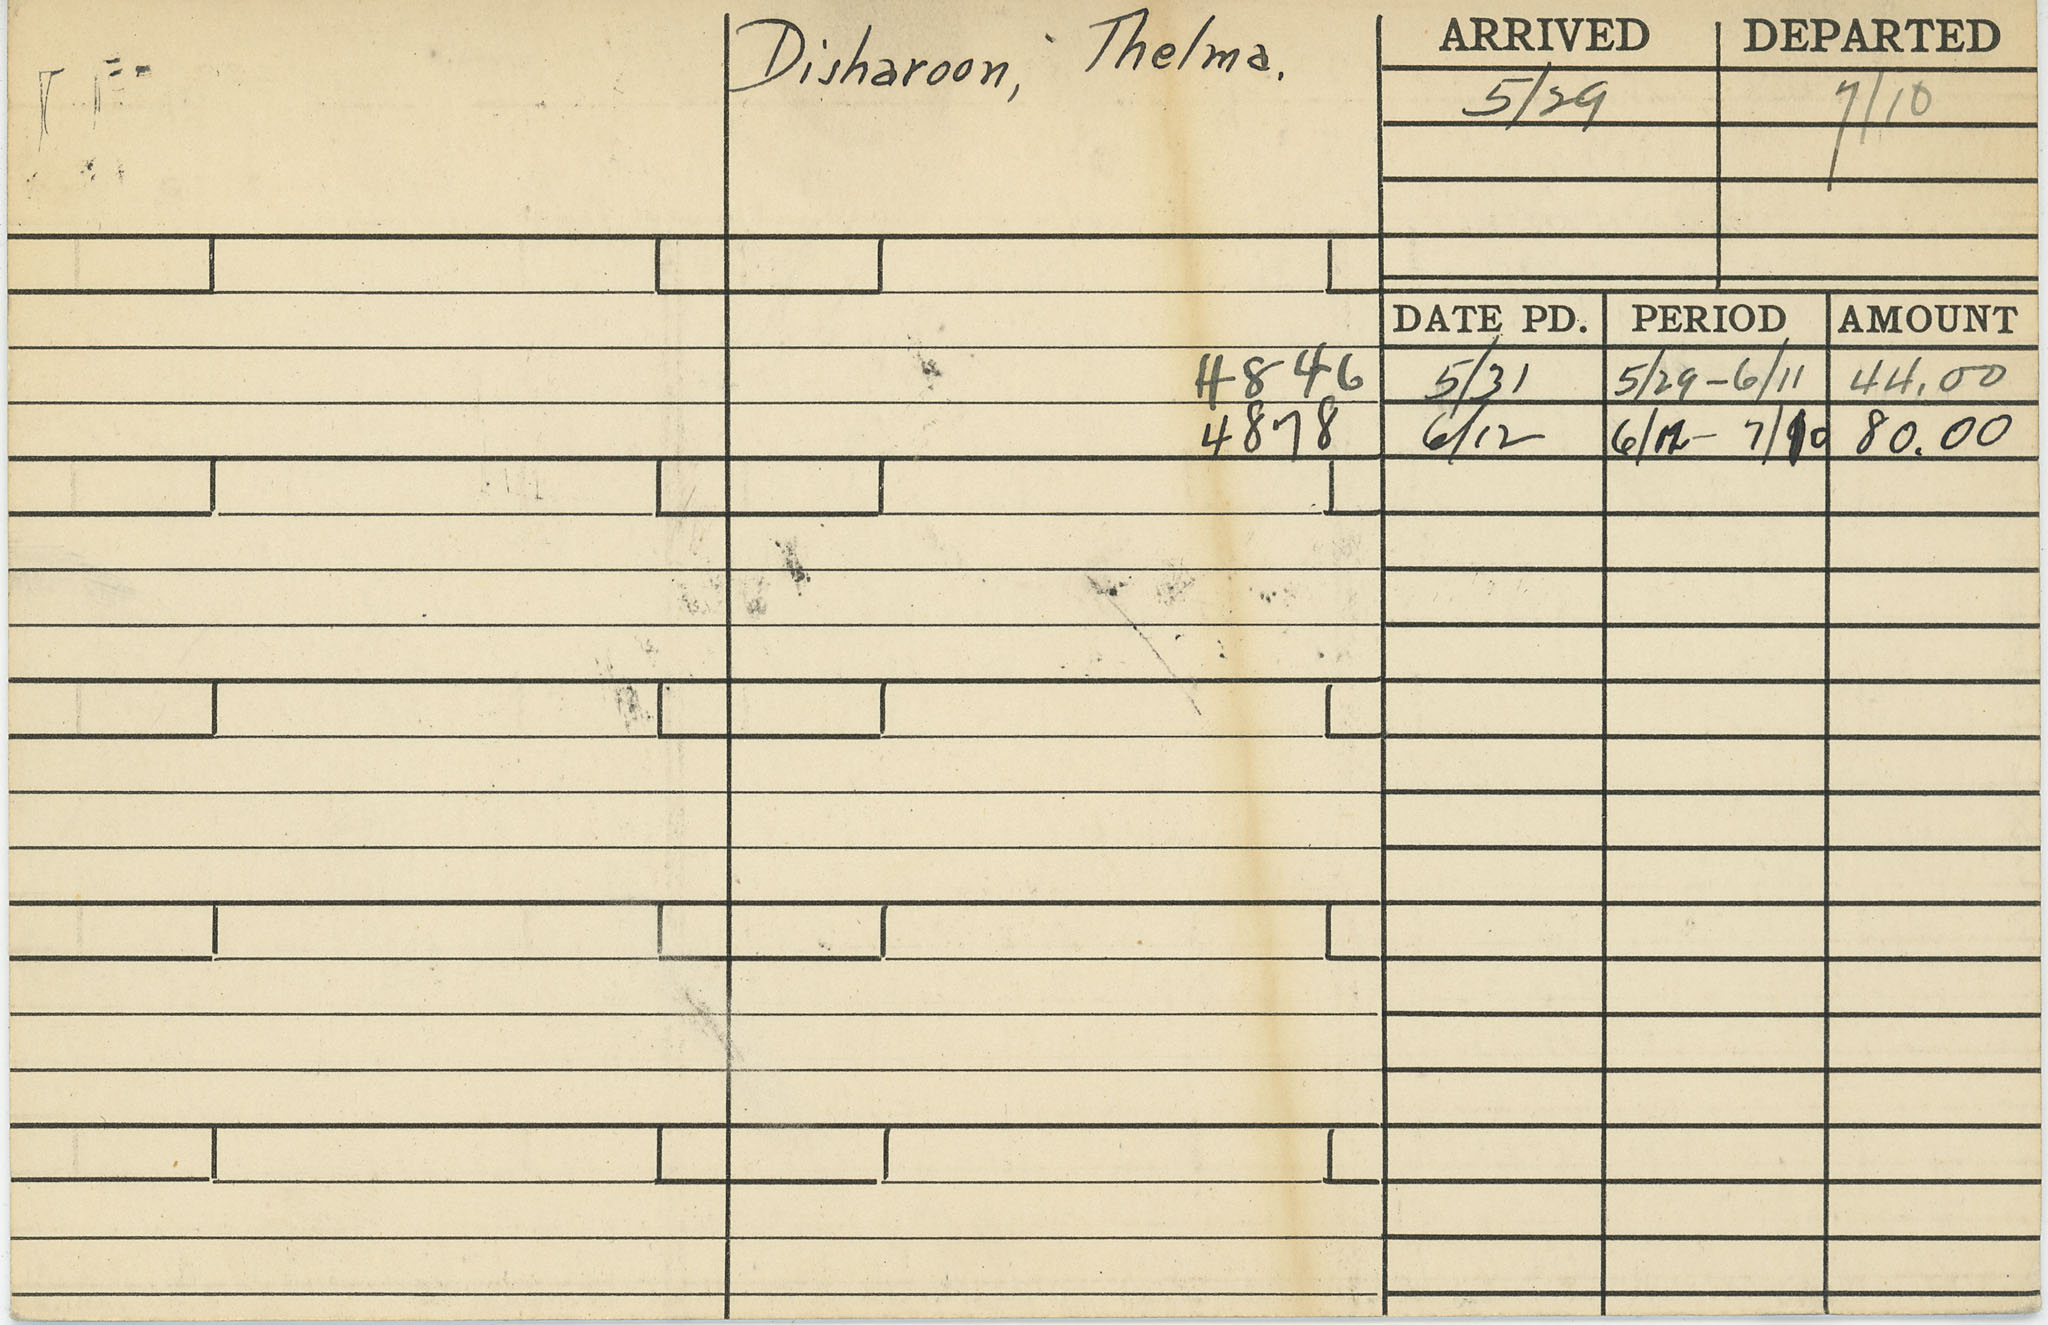 Disharoon, Thelma.
ARRIVED DEPARTED
5/29 7/10
DATE PD. PERIOD AMOUNT
4846 5/31 5/29-6/11 44.00
4878 6/12 6/12- 7/10 80.00